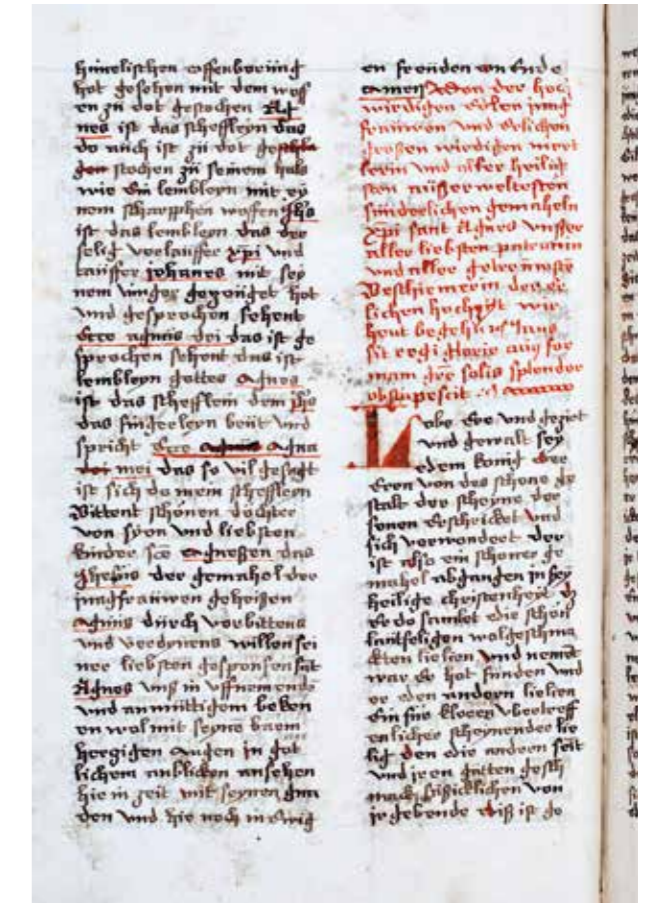 himelischen offenbarung
hot gesehen mit dem woff
en zu dot gestochen Ag
nes ist das scheffleyn das
do auch ist zu dot geschla
gen stochen zu seinem hals
wie ein lembleyn mit ey
nem scharpphen woffen Jhs
ist das lembleyn das der
selig vorlauffer xpi vnd
tauffer johanes mit sey
nem vinger gezeuget hot
vnd gesprochen sehent
Ecce agnus dei das ist ge
sprochen sehent das ist
lembleyn gottes Agnes
ist das schefflein dem jhs
das fingerleyn beut vnd
spricht Ecce agnus Agna
dei mei das so vil gesagt
ist sich do mein scheffleyn
Bittent schonen dochter
von syon vnd liebsten
kinder sce Agneßen das
Jhesus der gemahel der
jungfrauwen geheißen
Agnus durch vorbittens
vnd verdynens willen sei
ner liebsten gesponsen sat
Agnes vnß in vffnemende
vnd anmuttigem beken
en wol mit seyne barm
hertzigen Augen in got
lichem anblicken ansehen
hie in zeit mit seynen gna
den vnd hie noch in Ewig
en freuden on Ende
Amen Von der hoch
wirdigen Edlen jung
frauwen vnd Erlichen
großen wirdigen mert
lerin vnd aller heilig
sten außerweltesten
sunderlichen gemaheln
Xpi sant Agnes vnsser
aller liebsten patronin
vnd aller getrewoste
Beschirmerin der er
lichen hochzyt wir
heut begehn
sit regi glorie cuius for
mam sole solis splendor
obstupescit
Lobe Ere vnd gezirt
vnd gewalt sey
edem konig der
Eren von des schone ge
stalt der scheyne der
sonen Erschricket vnd
sich verwondert der
ist also ein schoner ge
mahel abgangen in sey
heilige christenheyt dz
Er do samlet die schon
lantseligen wolgeschma
ckten lielien vnd nement
war Er hot funden vnd
er den andern lielien
Ein fur
enlicher scheynender lie
lig den die andern seit
vnd jren gutten gesch
mack von
jr gebende diß ist ge